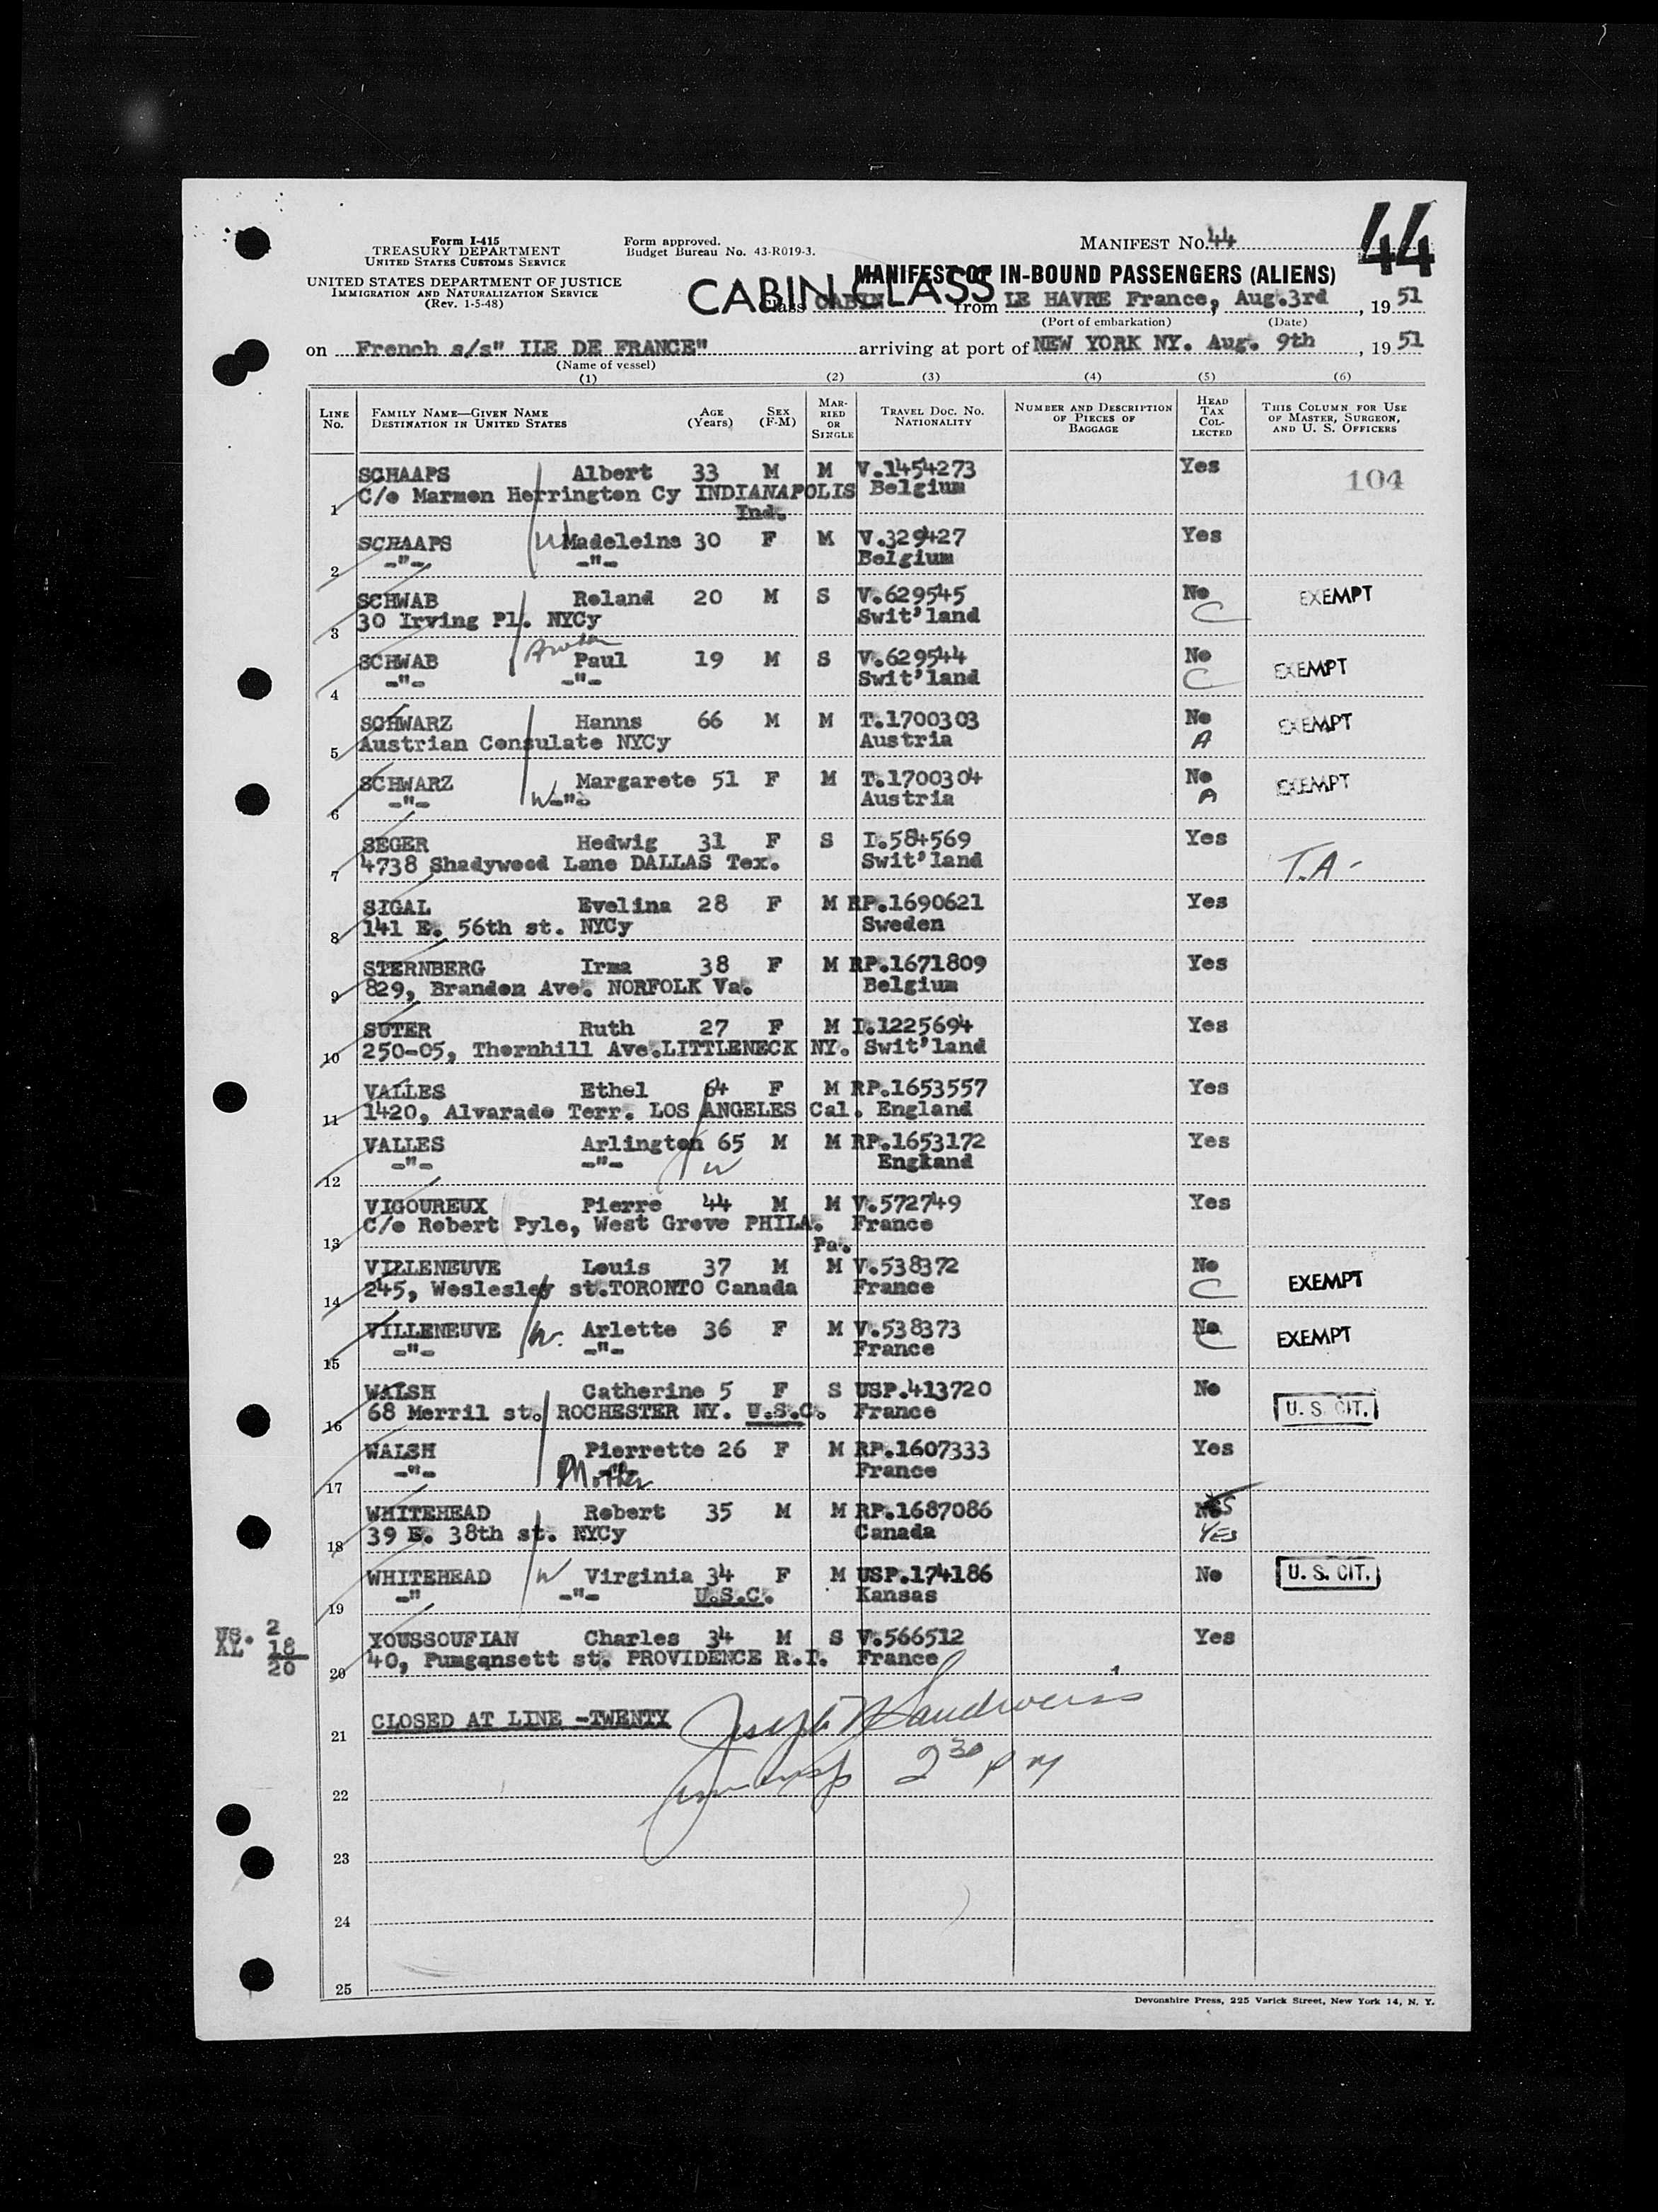 44
Form I-415
TREASURY DEPARTMENT
UNITED STATES CUSTOMS SERVICE
UNITED STATES DEPARTMENT OF JUSTICE
IMMIGRATION AND NATURALIZATION SERVICE
(Rev. 1-5-48)
Form approved.
Budget Bureau No. 43-R019-3.
MANIFEST No. 44
MANIFEST OF IN-BOUND PASSENGERS (ALIENS)
CABIN CLASS
Class CABIN from LE HAVRE France, Aug.3rd, 19 51
(Port of embarkation) (Date)
on French s/s" ILE DE FRANCE" arriving at port of NEW YORK NY. Aug. 9th, 19 51
(Name of vessel)
(1) (2) (3) (4) (5) (6)
LINE No. FAMILY NAME—GIVEN NAME DESTINATION IN UNITED STATES AGE (Years) SEX (F-M) MARRIED OR SINGLE TRAVEL DOC. NO. NATIONALITY NUMBER AND DESCRIPTION OF PIECES OF BAGGAGE HEAD TAX COLLECTED THIS COLUMN FOR USE OF MASTER, SURGEON, AND U. S. OFFICERS
SCHAAPS Albert 33 M M V.1454273 Yes 104
1 C/o Marmon Herrington Cy INDIANAPOLIS Belgium
Ind.
SCHAAPS W Madeleine 30 F M V.329427 Yes
2 -"- -"- Belgium
SCHWAB Roland 20 M S V.629545 No EXEMPT
3 30 Irving Pl. NYCy Swit'land C
SCHWAB Paul 19 M S V.629544 No EXEMPT
4 -"- -"- Swit'land C
SCHWARZ Hanns 66 M M T.1700303 No EXEMPT
5 Austrian Consulate NYCy Austria A
SCHWARZ Margarete 51 F M T.1700304 No EXEMPT
6 -"- W -"- Austria A
SEGER Hedwig 31 F S I.584569 Yes
7 4738 Shadywood Lane DALLAS Tex. Swit'land T.A-
SIGAL Evelina 28 F M RP.1690621 Yes
8 141 E. 56th st. NYCy Sweden
STERNBERG Irma 38 F M RP.1671809 Yes
9 829, Brandon Ave. NORFOLK Va. Belgium
SUTER Ruth 27 F M I.1225694 Yes
10 250-05, Thornhill Ave.LITTLENECK NY. Swit'land
VALLES Ethel 64 F M RP.1653557 Yes
11 1420, Alvarado Terr. LOS ANGELES Cal. England
VALLES Arlington 65 M M RP.1653172 Yes
12 -"- -"- W Engkand
VIGOUREUX Pierre 44 M M V.572749 Yes
13 C/o Robert Pyle, West Grove PHILA. France
Pa.
VILLENEUVE Louis 37 M M V.538372 No EXEMPT
14 245, Weslesley st.TORONTO Canada France C
VILLENEUVE W. Arlette 36 F M V.538373 No EXEMPT
15 -"- -"- France C
WALSH Catherine 5 F S USP.413720 No U. S. CIT.
16 68 Merril st. ROCHESTER NY. U.S.C. France
WALSH Pierrette 26 F M RP.1607333 Yes
17 -"- Mother France
WHITEHEAD Robert 35 M M RP.1687086
18 39 E. 38th st. NYCy Canada YES
WHITEHEAD W Virginia 34 F M USP.174186 No U. S. CIT.
19 -" -"- U.S.C. Kansas
US. 2
AL. 18
20
YOUSSOUFIAN Charles 34 M S V.566512 Yes
20 40, Pumgansett st. PROVIDENCE R.I. France
21 CLOSED AT LINE -TWENTY
Joseph
2 30 PM
22
23
24
25
Devonshire Press, 225 Varick Street, New York 14, N. Y.